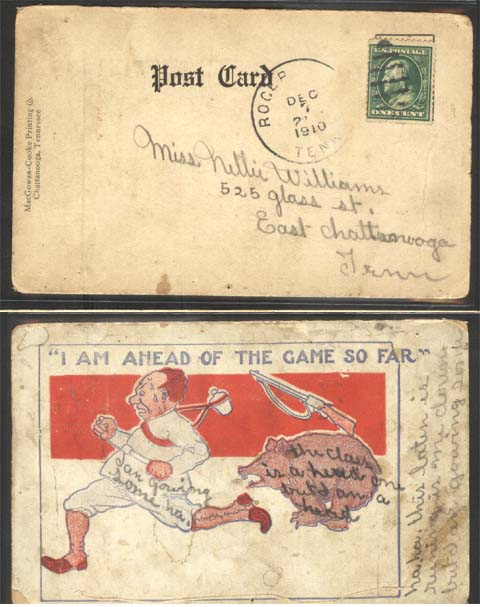 Post Card
ROGER
DEC
7
1910
TENN
U.S. POSTAGE
ONE CENT
MacGowan-Cooke Printing Co.
Chattanooga, Tennessee
Miss Nellie Williams
525 glass st.
East Chattanooga
Tenn
"I AM AHEAD OF THE GAME SO FAR"
san gowing
some ha.
the clash
is a head on
but I am a
head
ha ha. this later is
me down
but I are gowing som